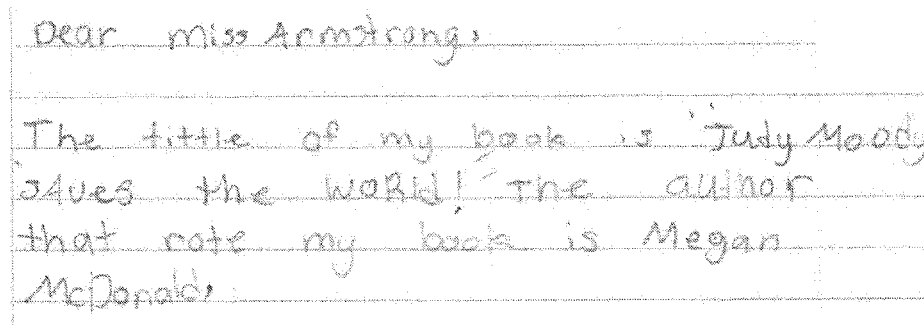 Dear miss Armstrong,
The tittle of my book is "Judy Moody
sAves the WORld!" The author
that rote my book is Megan
McDonald,